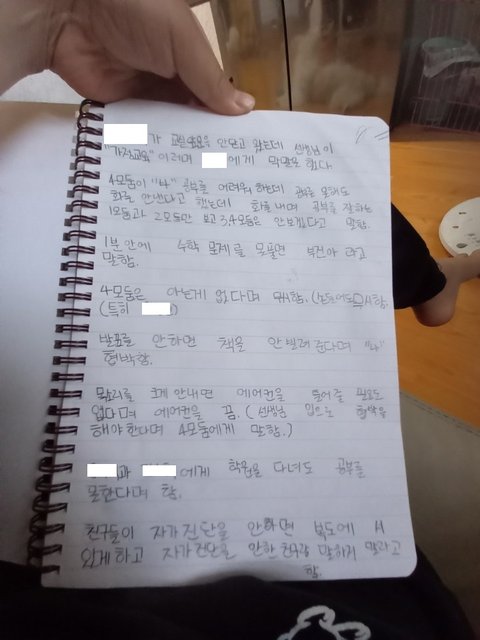 가 교실문을 안닫고 왔는데 선생님이
"가정교육" 이러며 에게 막말을 했다.
4모둠이 "4" 공부를 어려워 하는데 공부를 못해도
화를 안낸다고 했는데 화를 내며 공부를 잘하는
1모둠과 2모둠만 보고 3,4모둠은 안보겠다고 말함.
1분 안에 수학 문제를 못풀면 라고
말함.
4모둠은 아는게 없다며 무시함.
(특히 )
발표를 안하면 책을 안빌려준다며
협박함.
목소리를 크게 안내면 에어컨을 틀어줄 필요도
없다며 에어컨을 끔. (선생님 입으로 협박을
해야한다며 4모둠에게 말함.)
과 에게 학원을 다녀도 공부를
못한다며 함.
친구들이 자가진단을 안하면 복도에 서
있게하고 자가진단을 안한 친구랑 말하지 말라고
함.